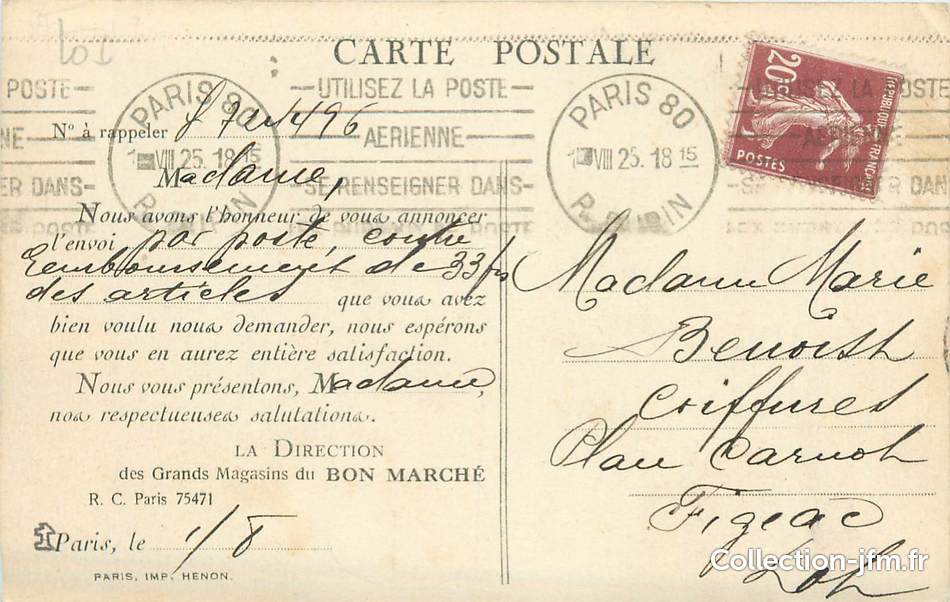 CARTE POSTALE
POSTE — UTILISEZ LA POSTE
AERIENNE
SE RENSEIGNER DANS
PARIS 80
VIII 25. 18 15
PARIS 80
1 VIII 25. 18 15
20c
REPUBLIQUE FRANÇAISE
POSTES
N° à rappeler
Madame,
Nous avons l'honneur de vous annoncer
l'envoi par poste, contre
Remboursement de 33 frs
des articles que vous avez
bien voulu nous demander, nous espérons
que vous en aurez entière satisfaction.
Nous vous présentons, Madame,
nos respectueuses salutations.
LA DIRECTION
des Grands Magasins du BON MARCHÉ
R. C. Paris 75471
Paris, le 1/8
PARIS, IMP. HENON.
Madame Marie
Benoist
Coiffures
Place Carnot
Figeac
Lot
Collection-jfm.fr